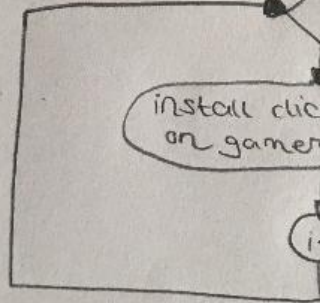 install clic
on gamer
i